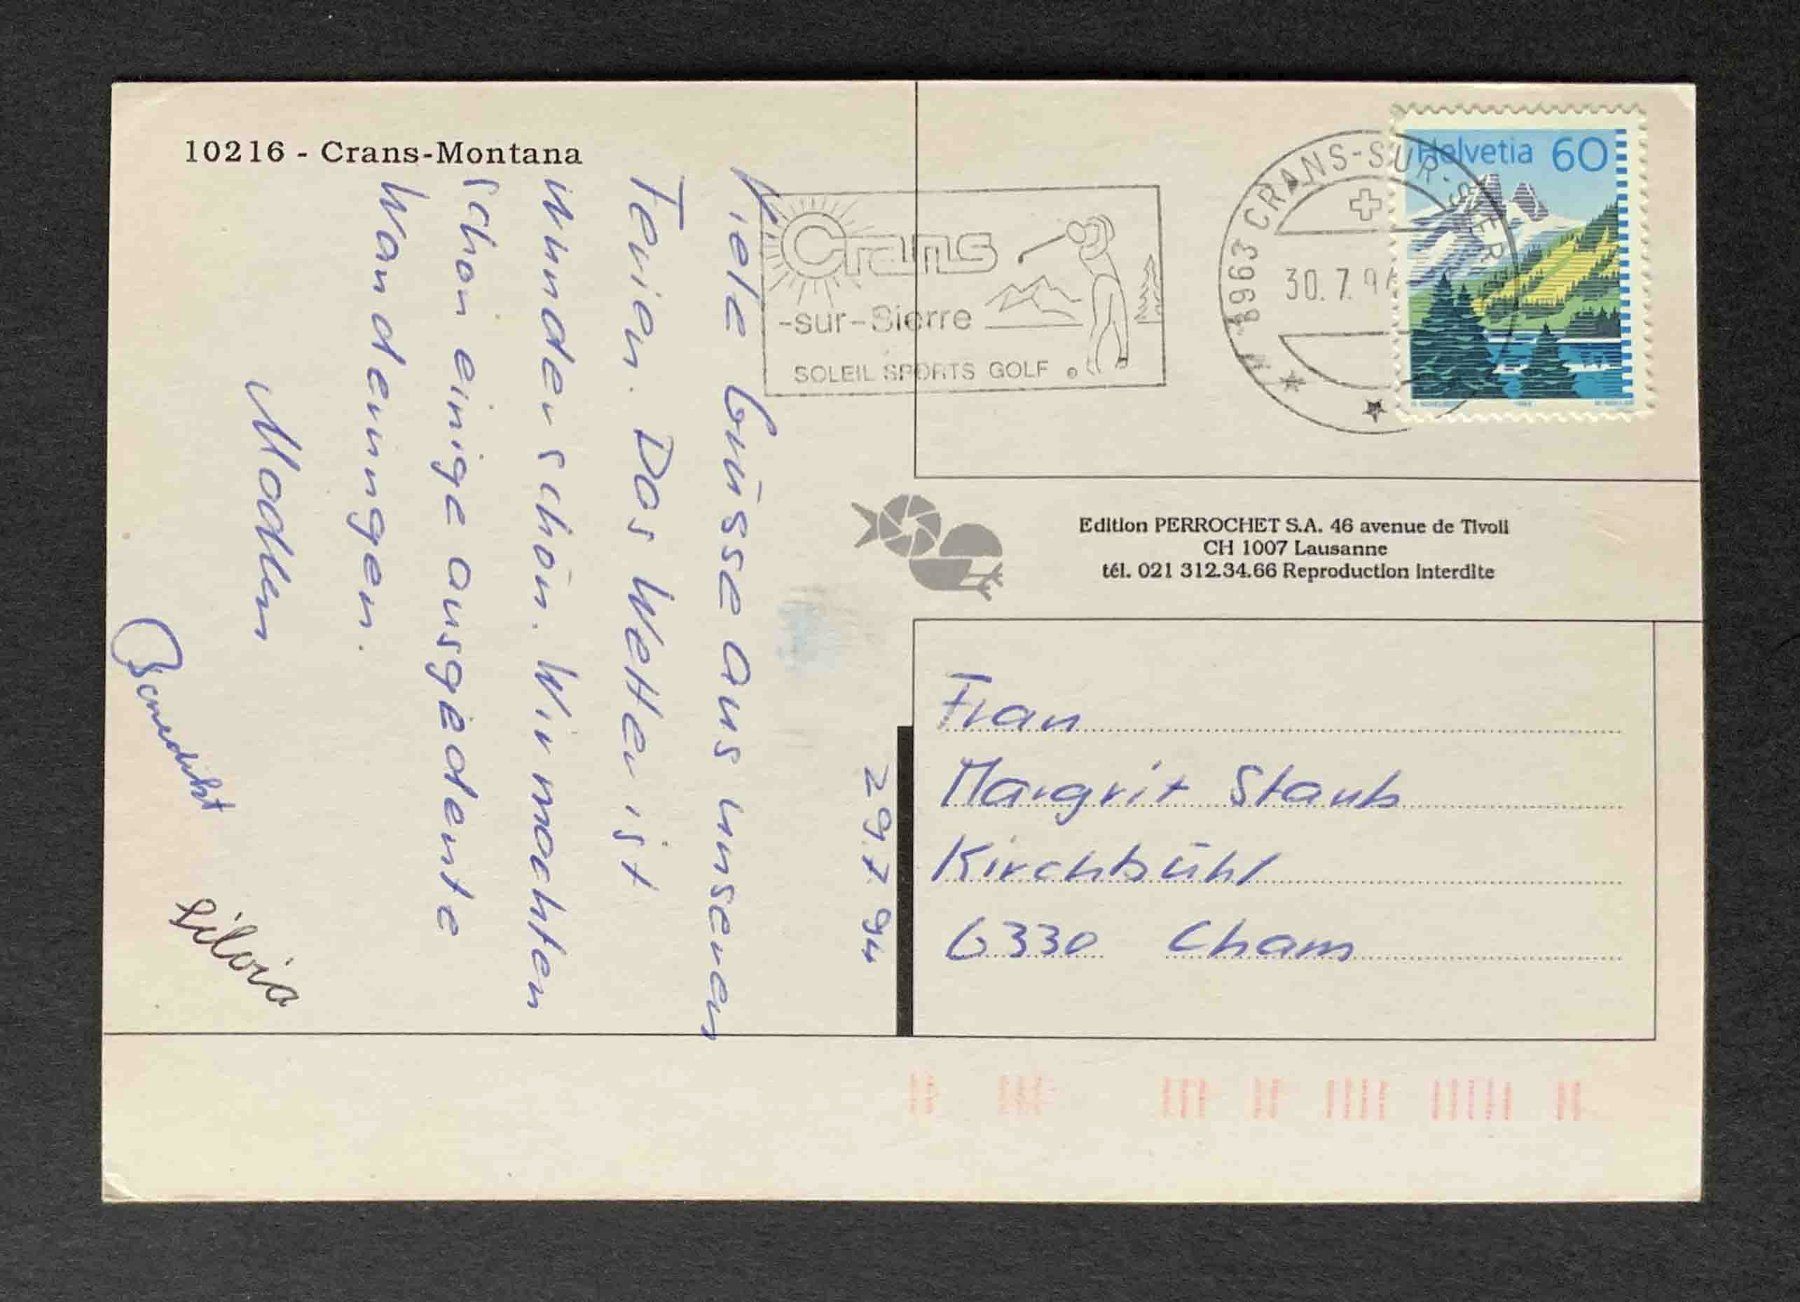 10216 - Crans-Montana
29.7.94
Viele Grüsse aus unseren
Ferien. Das Wetter ist
wunderschön. Wir machten
schon einige ausgedente
Wanderungen.
Madlen
Benedikt
Silvia
Crans
-sur-Sierre
SOLEIL SPORTS GOLF
3963 CRANS-SUR-SIERRE
30.7.94
Helvetia 60
Edition PERROCHET S.A. 46 avenue de Tivoli
CH 1007 Lausanne
tél. 021 312.34.66 Reproduction interdite
Frau
Margrit Staub
Kirchbühl
6330 Cham